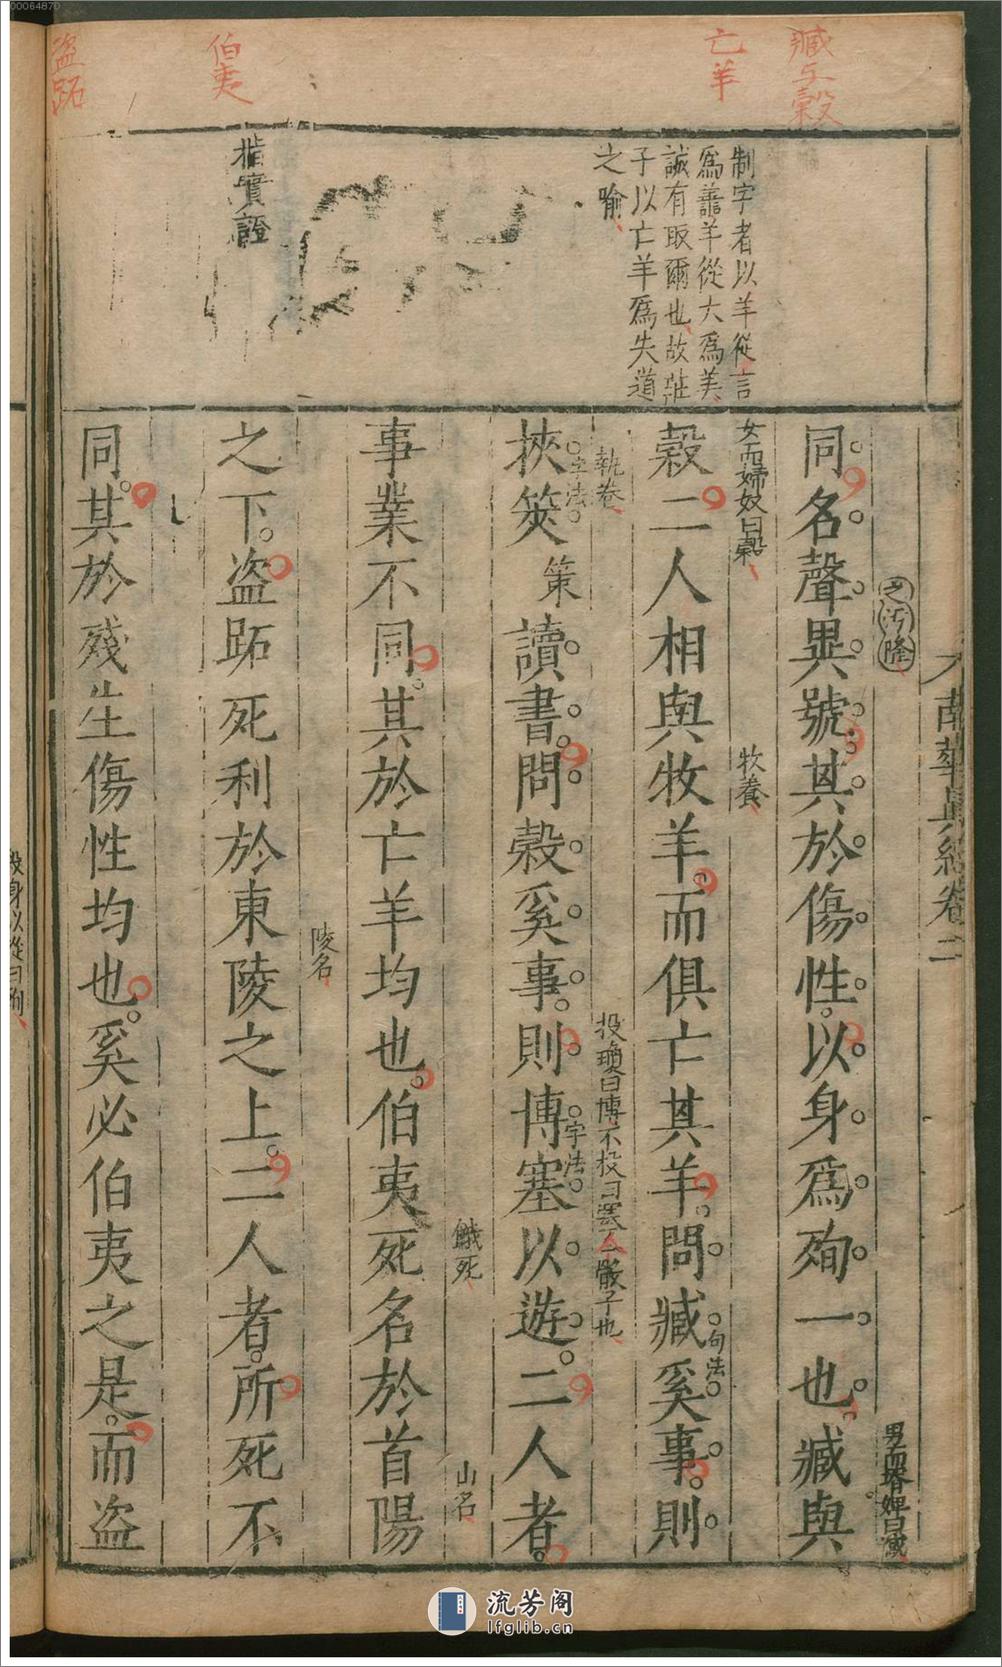 00064870
臧与穀
亡羊
伯夷
盜跖
制字者以羊從言
爲譱羊從大爲美
誠有取爾也故莊
子以亡羊爲失道
之喻
指實證
南華眞經卷二
之汚隆
男而壻婢曰臧
同名聲異號其於傷性以身爲殉一也臧與
女而婦奴曰穀
牧養
穀二人相與牧羊而俱亡其羊問臧奚事則
句法
執卷
投瓊曰博不投曰塞瓊骰子也
挾筴策讀書問穀奚事則博塞以遊二人者
字法
字法
餓死
山名
事業不同其於亡羊均也伯夷死名於首陽
陵名
之下盜跖死利於東陵之上二人者所死不
同其於殘生傷性均也奚必伯夷之是而盜
殺身以從曰殉
流芳阁
lfglib.cn